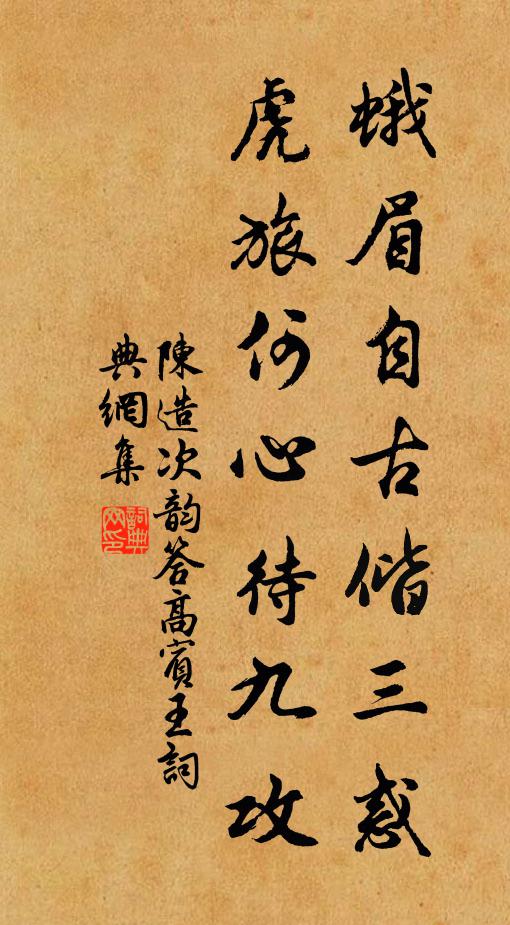 蛾眉自古偕三惑
虎旅何心待九攻
陳造次韵答高賓王詞
典網集
詞典網印